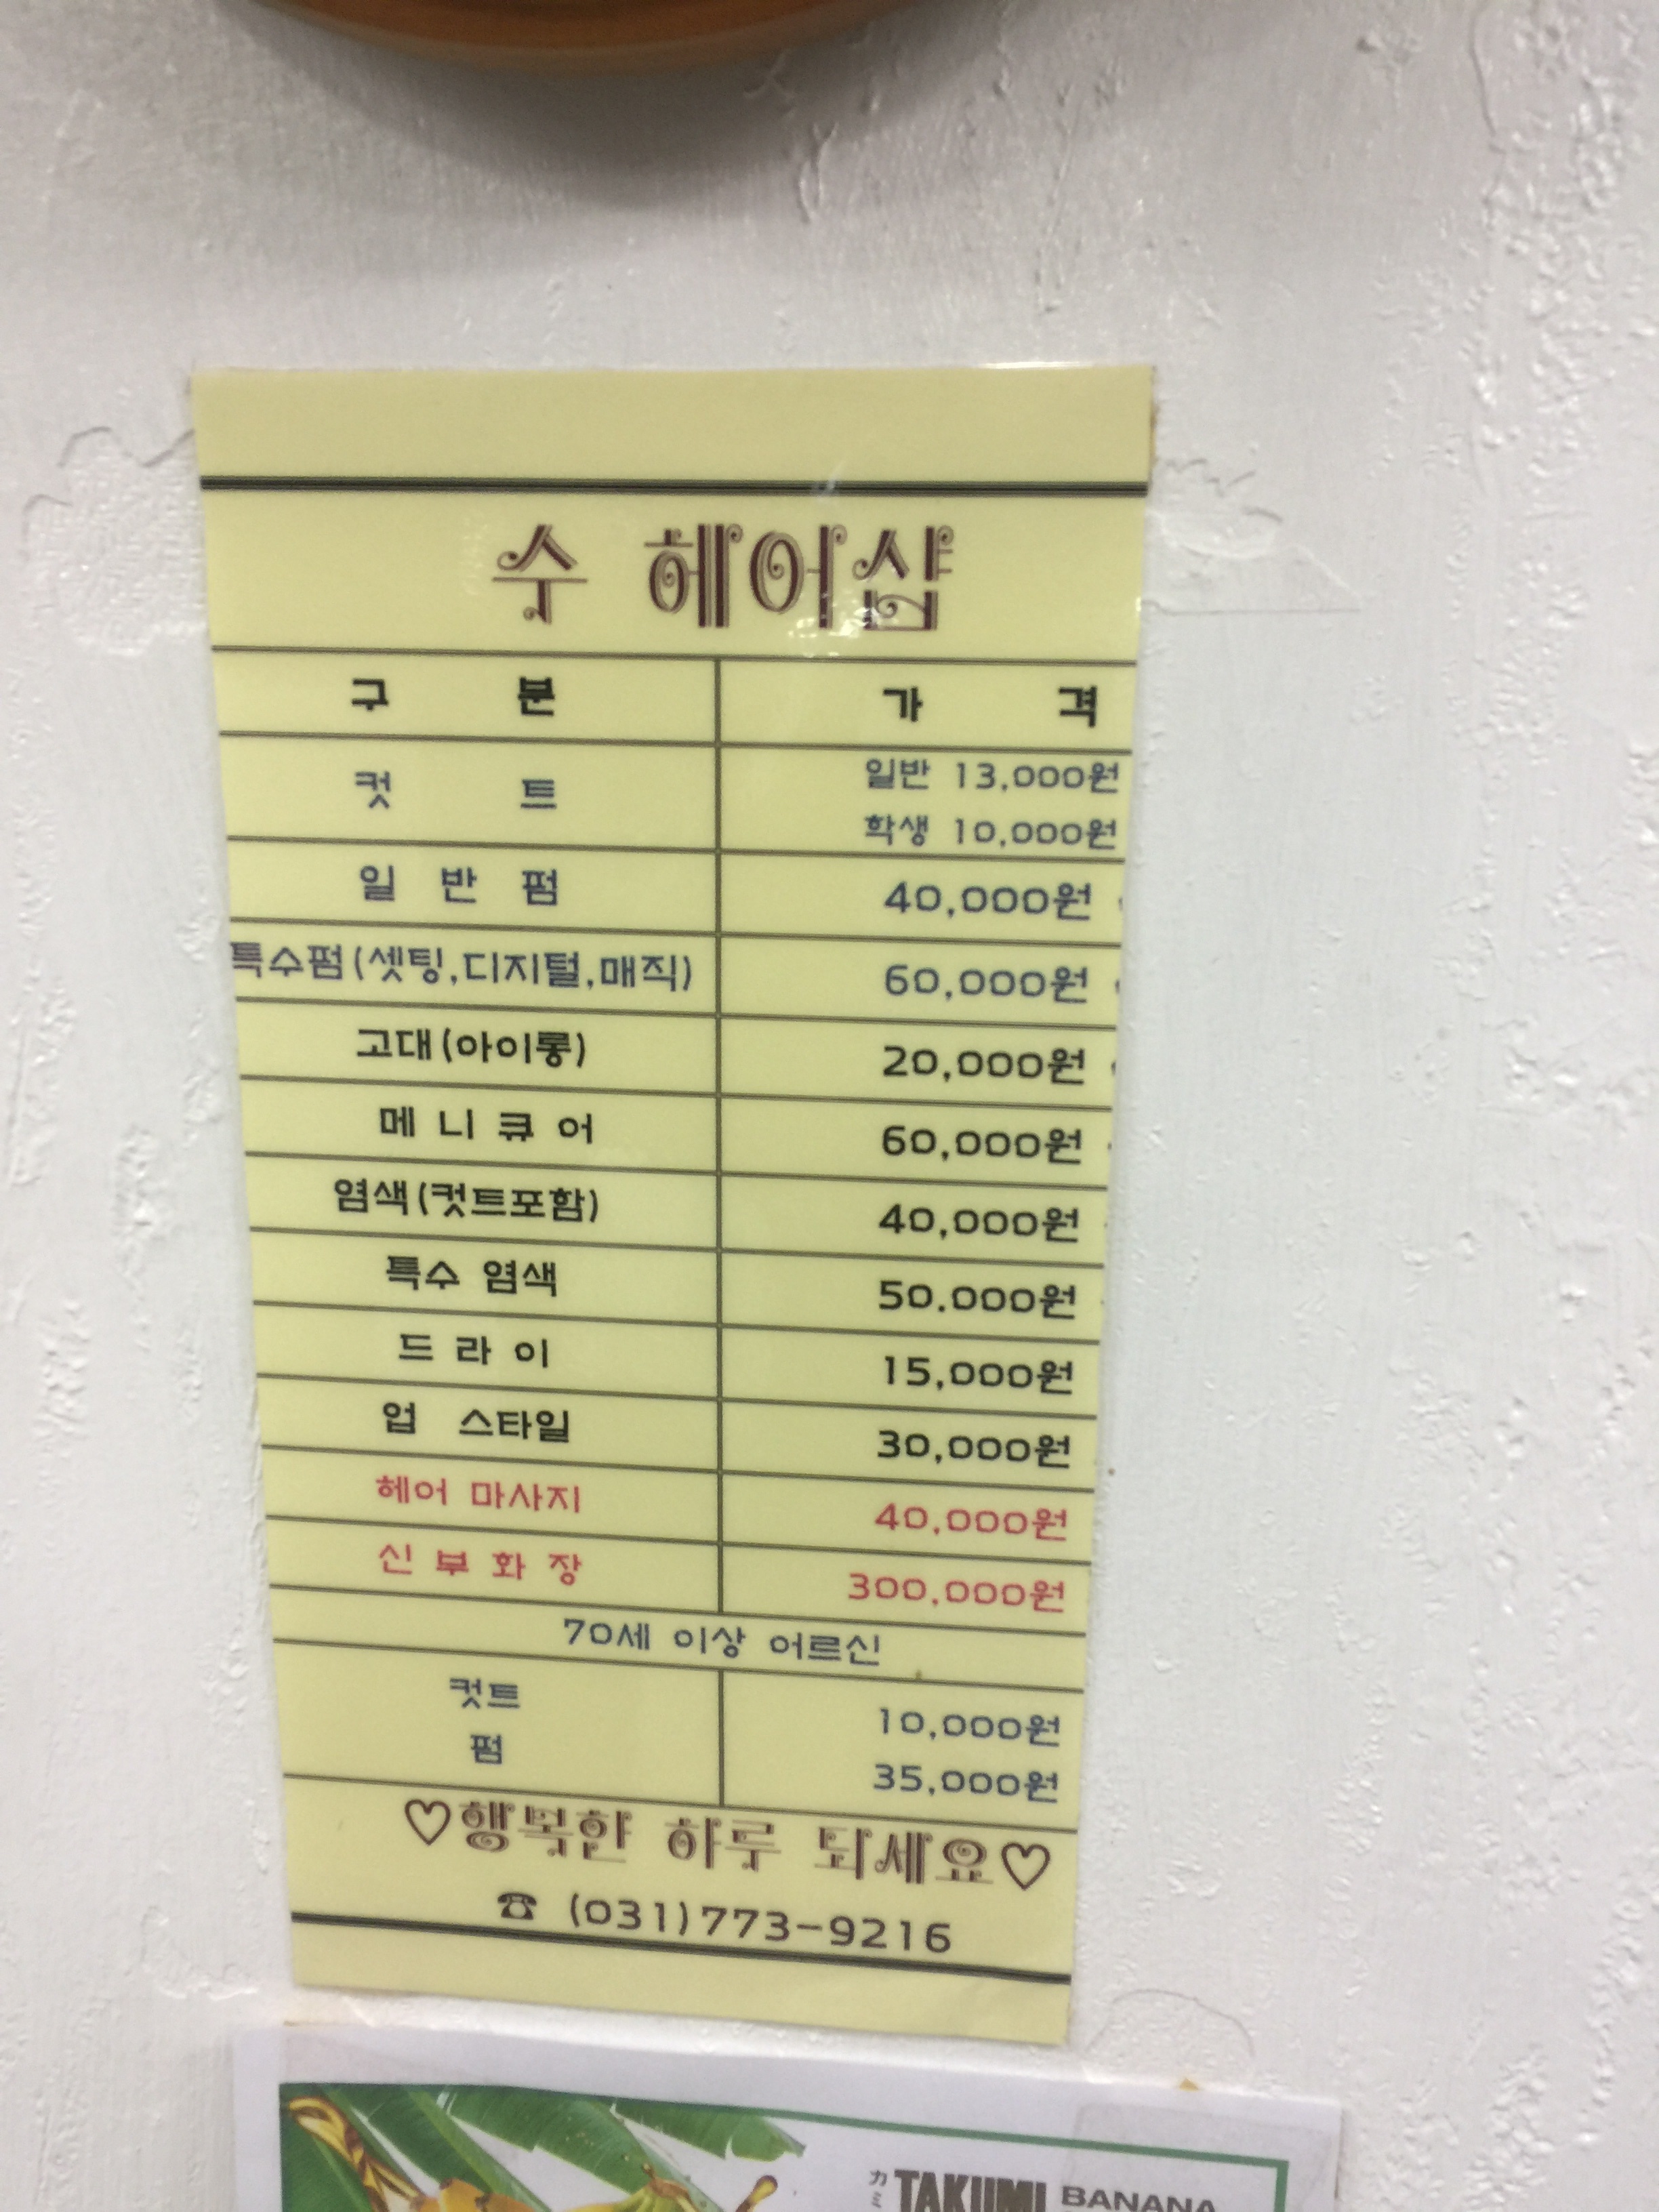 수 헤어샵
구 분 가 격
컷 트 일반 13,000원
학생 10,000원
일 반 펌 40,000원
특수펌(셋팅,디지털,매직) 60,000원
고대(아이롱) 20,000원
메 니 큐 어 60,000원
염색(컷트포함) 40,000원
특수 염색 50.000원
드 라 이 15,000원
업 스타일 30,000원
헤어 마사지 40,000원
신 부 화 장 300,000원
70세 이상 어르신
컷트 10,000원
펌 35,000원
♡행복한 하루 되세요♡
☎ (031)773-9216
カミ TAKUMI BANANA